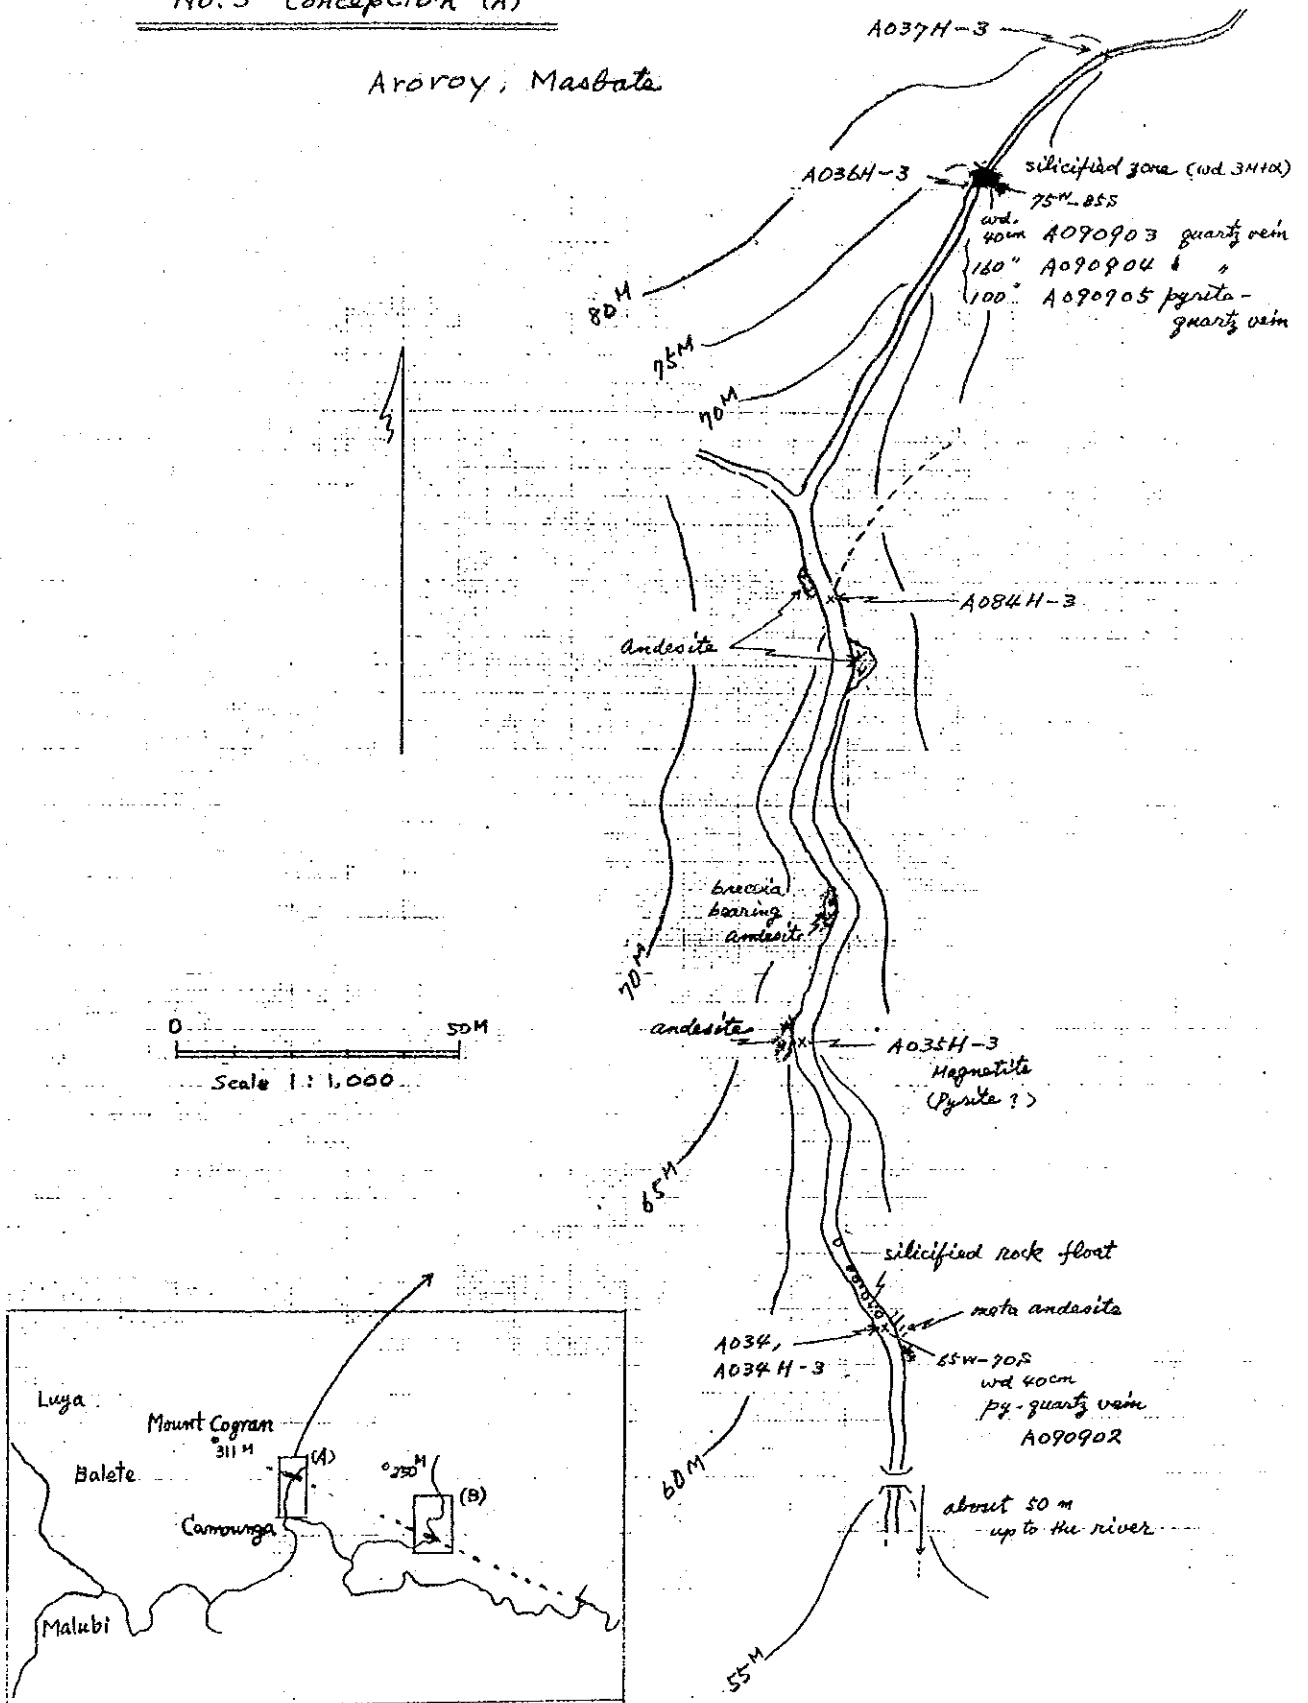 No.3 Concepcion (A)
Aroroy, Masbate
A037H-3
A036H-3
silicified zone (wd 3M+α)
75W-85S
wd.
40cm A090903 quartz vein
160" A090904 " "
100" A090905 pyrite-
quartz vein
80M
75M
70M
A084H-3
Andesite
breccia
bearing
andesite
70M
andesite
A035H-3
Magnetite
(Pyrite ?)
0 50M
Scale 1 : 1,000
65M
silicified rock float
meta andesite
A034,
A034H-3
85W-70S
wd 40cm
py-quartz vein
A090902
60M
about 50 m
up to the river
55M
Luya
Mount Cogran
311M
(A)
Balete
250M
(B)
Camounga
Malubi